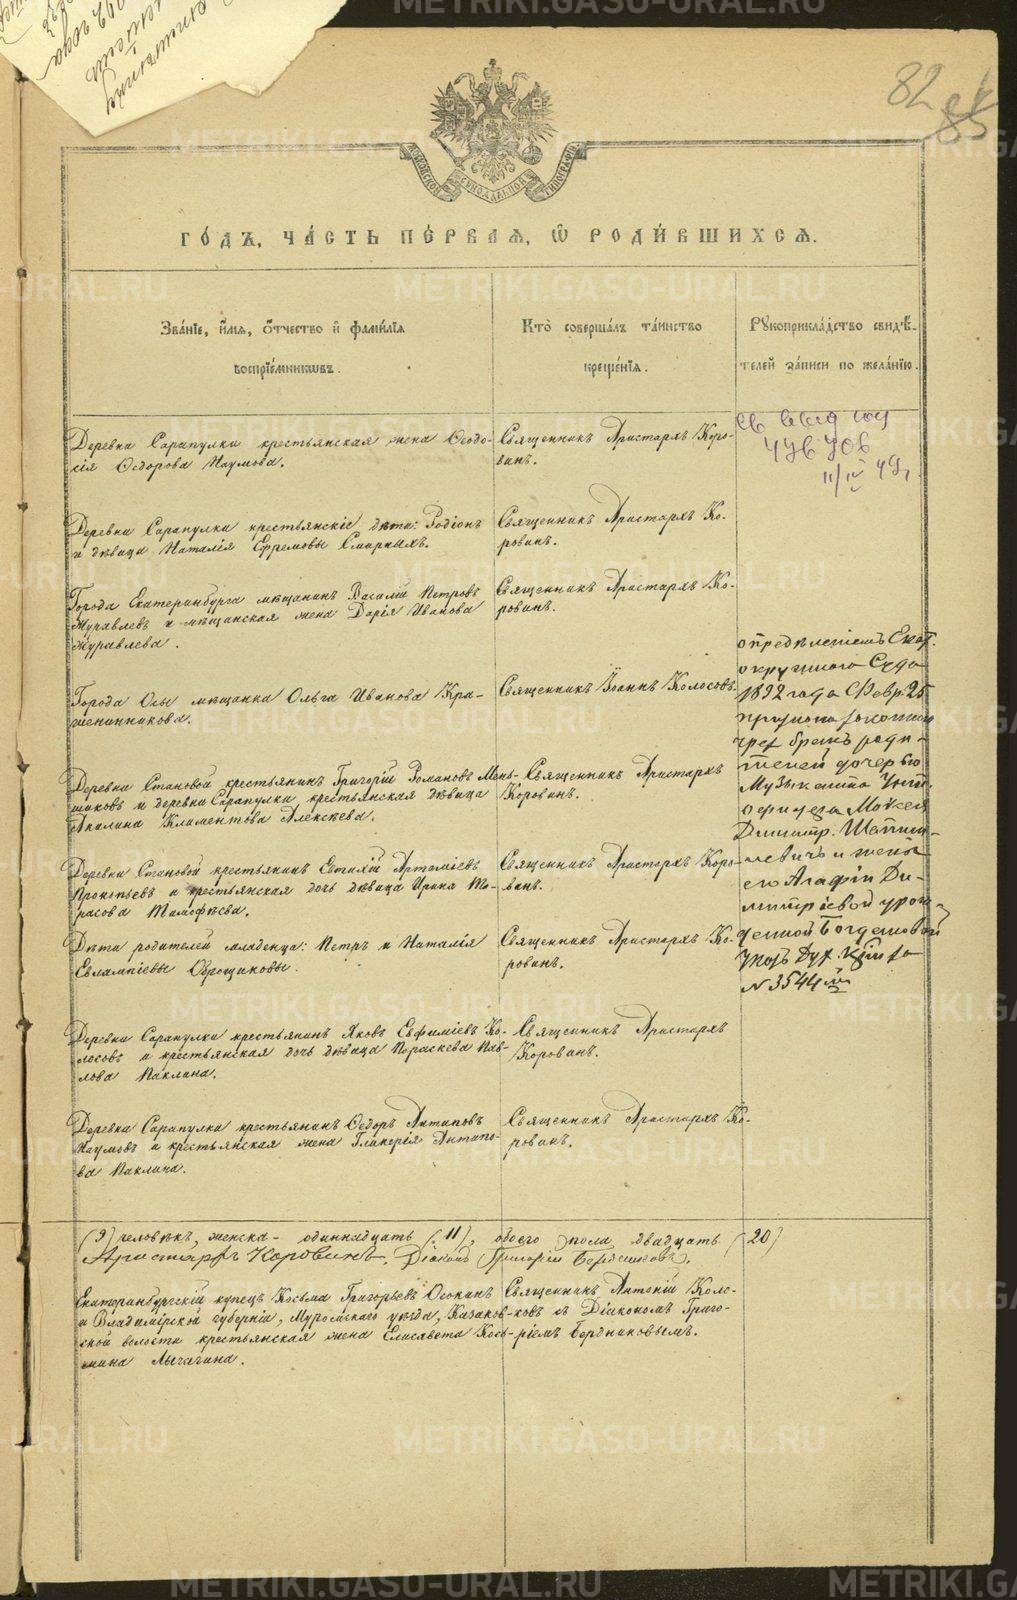 82
85
МОСКОВСКОЙ СѴНОДАЛЬНОЙ ТИПОГРАФІИ
ГО́ДЪ, ЧА́СТЬ ПЕ́РВАЯ, Ѡ РОДИ́ВШИХСЯ.
Зва́нїе, и҆́мя, ѻ҆́тчество и҆ фами́лїя
воспрїе́мникѡвъ.
Кто̀ соверша́лъ та́инство
креще́нїя.
Рꙋкоприкла́дство свидѣ́-
телей за́писи по жела́нїю.
Деревни Сарапулки крестьянская жена Ѳеодо-
сія Ѳедорова Наумова.
Священникъ Аристархъ Коро-
винъ.
11/IV 49 г.
Деревни Сарапулки крестьянскіе дѣти: Родіонъ
и дѣвица Наталія Ефремовы Смирныхъ.
Священникъ Аристархъ Ко-
ровинъ.
Города Екатеринбурга мѣщанинъ Василій Петровъ
Журавлевъ и мѣщанская жена Дарія Иванова
Журавлева.
Священникъ Аристархъ Ко-
ровинъ.
Города Осы мѣщанка Ольга Иванова Кра-
шенинникова.
Священникъ Іоаннъ Колосовъ.
опредѣленіемъ Екат.
окружнаго Суда
1892 года Февр. 25
признана законной
чрез бракъ роди-
телей дочерью
Музыканта Унт.
офицера Моисея
Димитр.
и жены
его Агафіи Ди-
митріевой урож-
денной Богдановой
Указъ Дух. К̃ріи за
№ 3544 м̃ъ
Деревни Становой крестьянинъ Григорій Романовъ Мень-
шиковъ и деревни Сарапулки крестьянская дѣвица
Акилина Климентова Алексѣева.
Священникъ Аристархъ
Коровинъ.
Деревни Становой крестьянинъ Евтихій Артеміевъ
Прокопьевъ и крестьянская дочь дѣвица Ирина Та-
расова Тимофѣева.
Священникъ Аристархъ Коро-
винъ.
Дѣти родителей младенца: Петръ и Наталія
Евлампіевы Оброщиковы.
Священникъ Аристархъ Ко-
ровинъ.
Деревни Сарапулки крестьянинъ Яковъ Евфиміевъ Ко-
лосовъ и крестьянская дочь дѣвица Параскева Пав-
лова Паклина.
Священникъ Аристархъ
Коровинъ.
Деревни Сарапулки крестьянинъ Ѳедоръ Антиповъ
Наумовъ и крестьянская жена Гликерія Антипо-
ва Паклина.
Священникъ Аристархъ Ко-
ровинъ.
(9) человѣкъ, женска- одиннадцать (11), обоего пола двадцать (20)
Аристархъ Коровинъ. Діаконъ Григорій Бердниковъ.
Екатеринбургскій купецъ Косьма Григорьевъ Осокинъ
и Владимірской губерніи, Муромскаго уѣзда, Казаков-
ской волости крестьянская жена Елисавета Косъ-
мина Лычагина.
Священникъ Антоній Коло-
ковъ съ Діакономъ Григо-
ріемъ Бердниковымъ.
METRIKI.GASO-URAL.RU